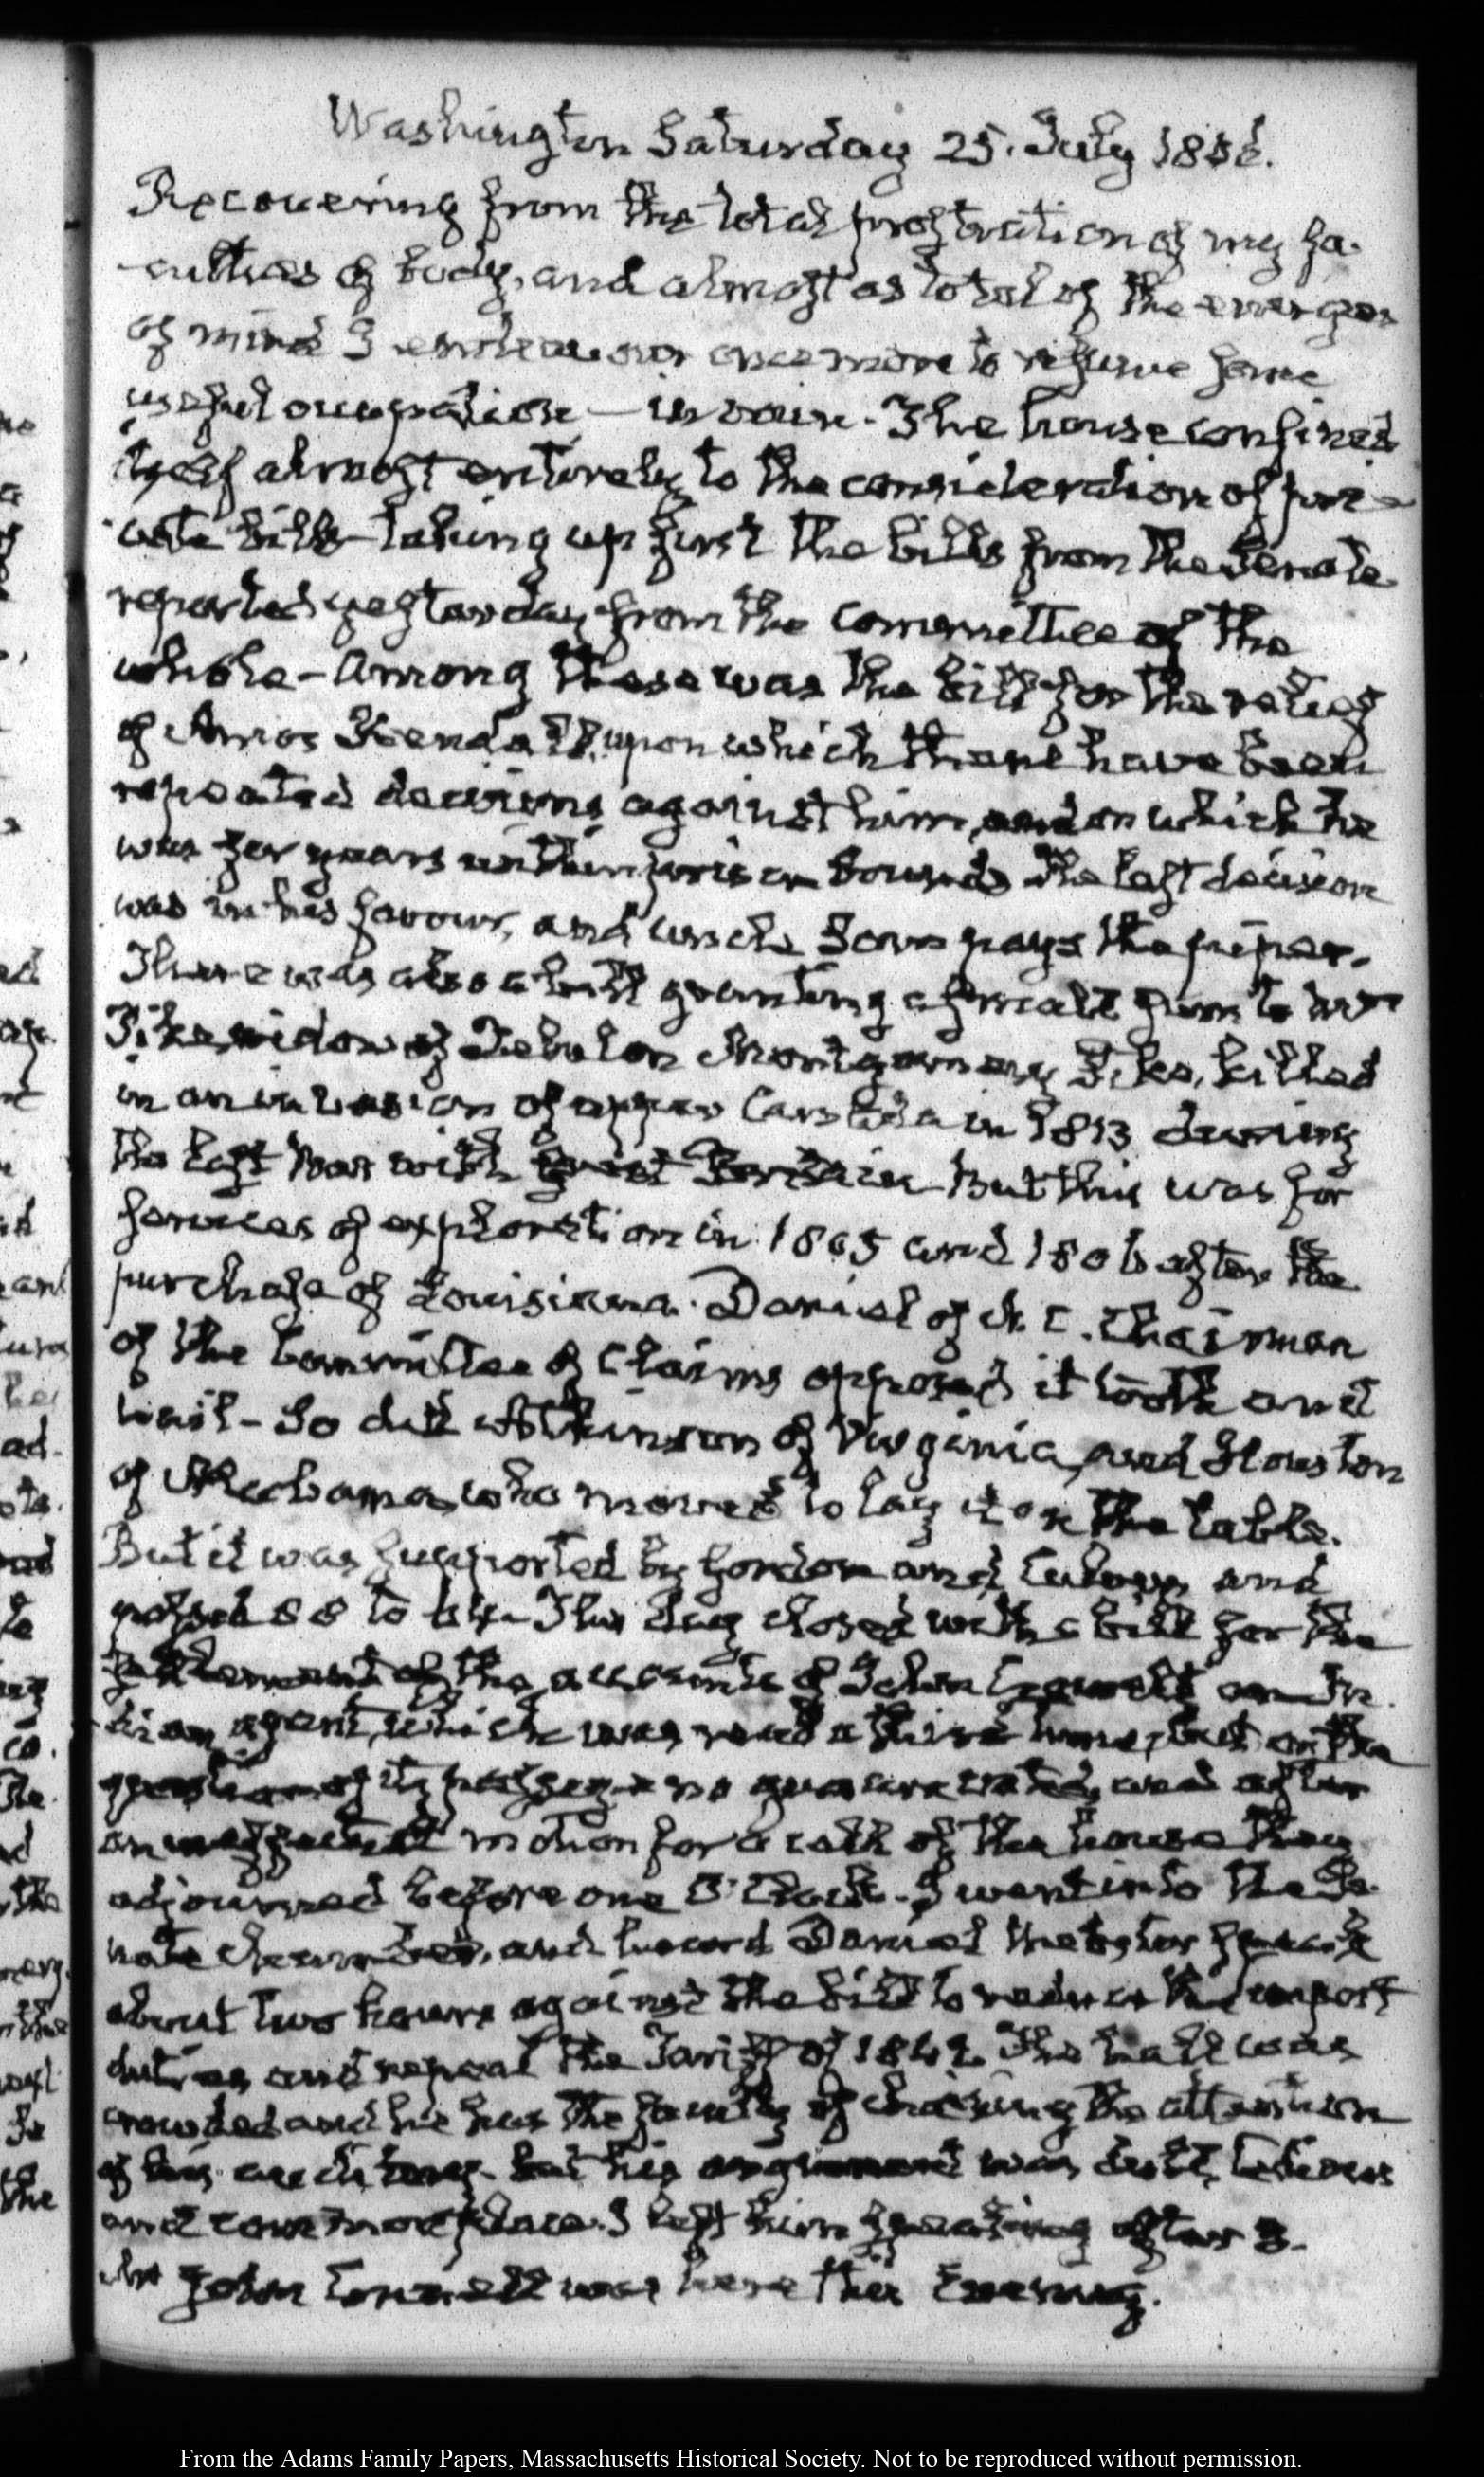 Washington Saturday 25. July 1846.
Recovering from the total prostration of my fa-
culties of body, and almost as total of the energies
of mind I endeavour once more to resume some
useful occupation — in vain. The house confined
itself almost entirely to the consideration of pri-
vate bills taking up first the bills from the Senate
reported yesterday from the Committee of the
whole – Among these was the bill for the relief
of Amos Kendall, upon which there have been
repeated decisions against him, and on which he
was for years within prison bounds the last decision
was in his favour, and uncle Sam pays the piper.
There was also a bill granting a small sum to Mrs
Pike, widow of Zebulon Montgomery Pike, killed
in an invasion of upper Canada in 1813 during
the last War with Great Britain But this was for
services of exploration in 1805 and 1806 after the
purchase of Louisiana. Daniel of N. C. Chairman
of the Committee of Claims opposed it tooth and
nail – So did Atkinson of Virginia, and Houston
of Alabama, who moved to lay it on the table.
But it was supported by Gordon and and
passed 68 to 64. The day closed with a bill for the
settlement of the accounts of John Crowell an In-
dian agent, which was read a third time, but on the
question of its passage no quorum voted, and after
an motion for a call of the house they
adjourned before one O'Clock. I went into the Se-
nate chamber, and heard Daniel Webster speak
about two hours against the bill to reduce the import
duties and repeal the Tariff of 1842. The hall was
crowded and he has the faculty of chaining the attention
of his auditory but his argument was dull, tedious
and common place. I left him speaking after 3.
Mr John Connell was here this Evening.
From the Adams Family Papers, Massachusetts Historical Society. Not to be reproduced without permission.